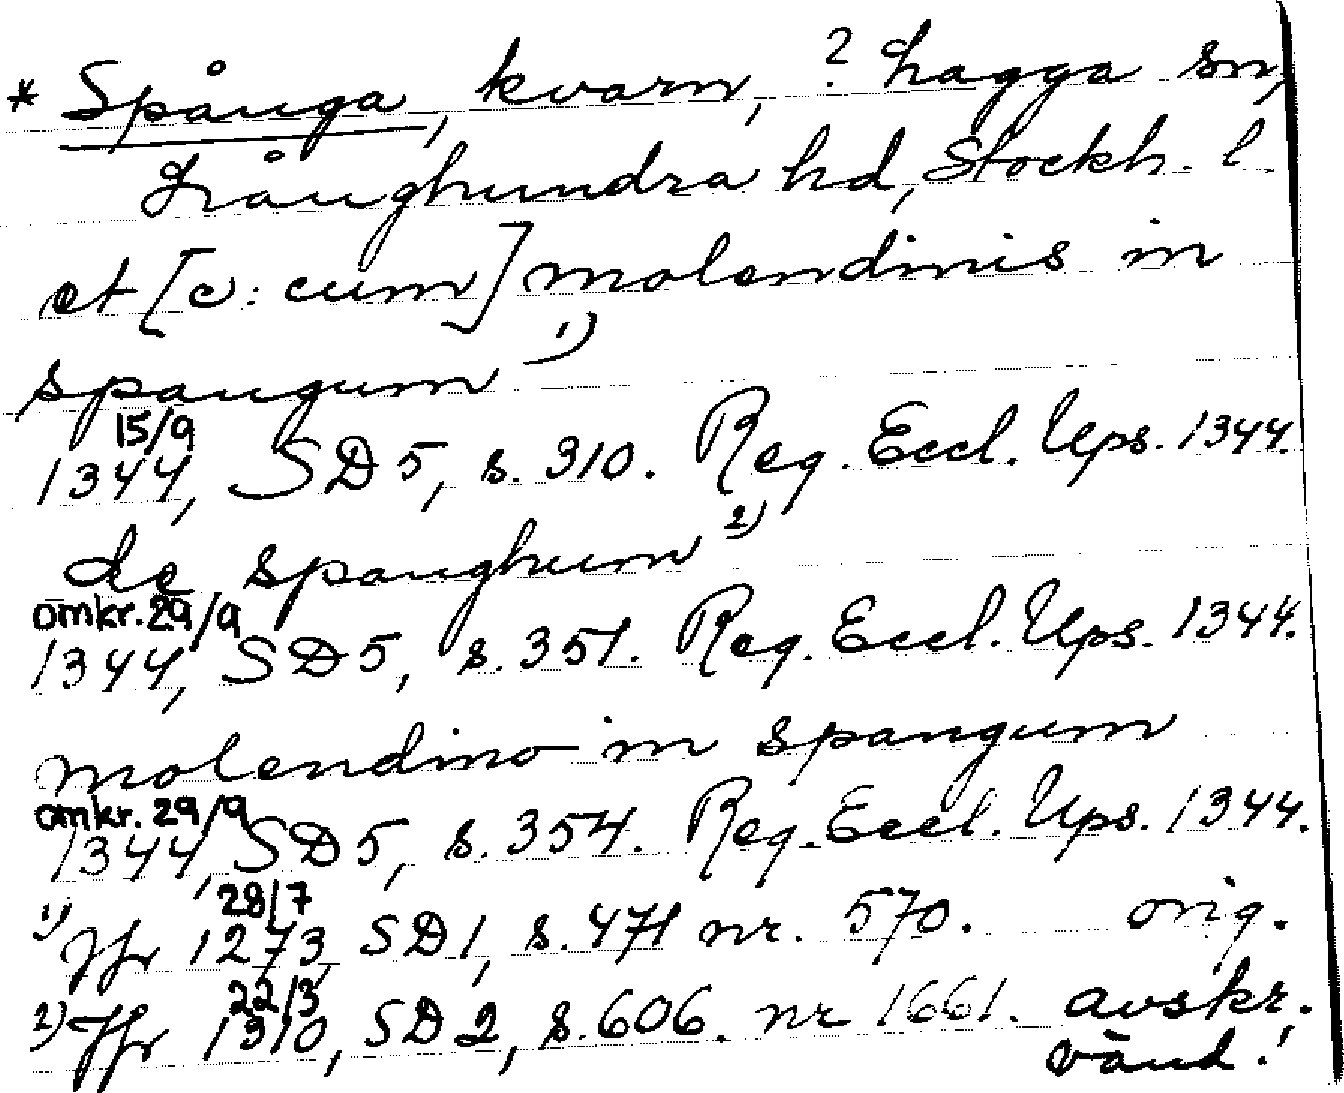 * Spånga, kvarn, ? hagga sn,
Långhundra hd, Stockh. l
et [c: cum] molendinis in
spangum 1)
15/9
1344, SD 5, s. 310. Reg. Eccl. Ups. 1344.
de spanghum 2)
omkr. 29/9
1344, SD 5, s. 351. Reg. Eccl. Ups. 1344.
molendino in spangum
omkr. 29/9
1344, SD 5, s. 354. Reg. Eccl. Ups. 1344.
28/7
1) Jfr 1273, SD 1, s. 471 nr. 570. orig.
22/3
2) Jfr 1310, SD 2, s. 606. nr 1661. avskr.
vänd!